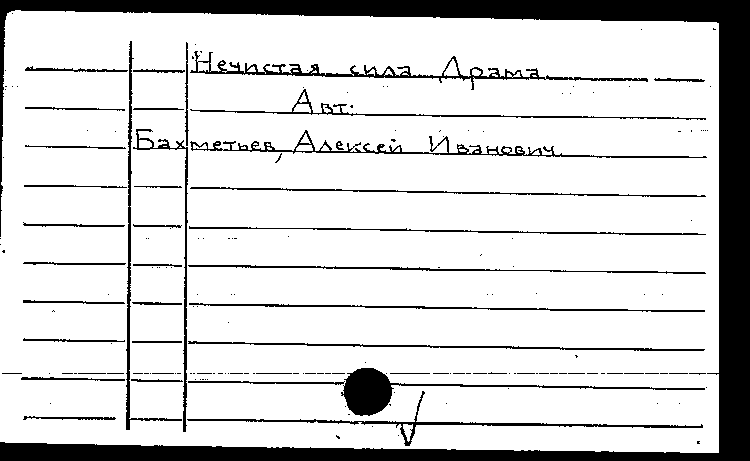 Нечистая сила. Драма.
Авт:
Бахметьев, Алексей Иванович.